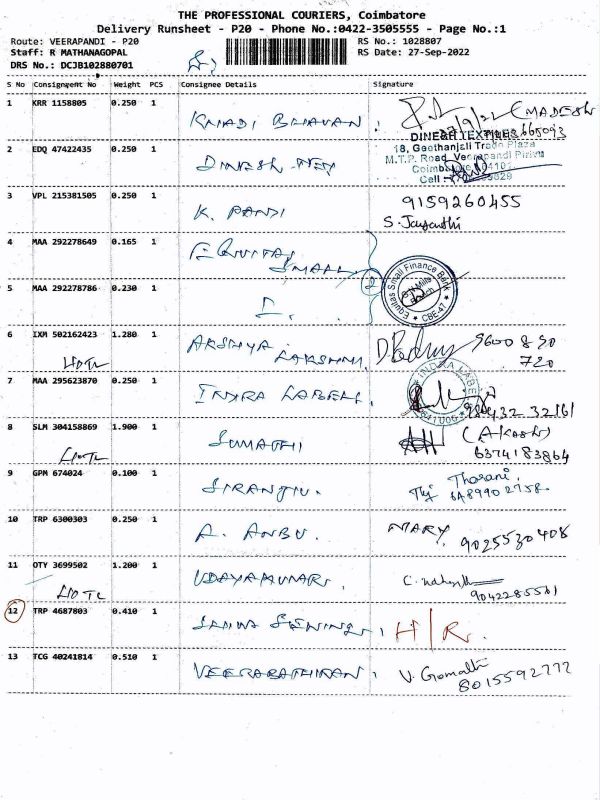 THE PROFESSIONAL COURIERS, Coimbatore
Delivery Runsheet - P20 - Phone No.:0422-3505555 - Page No.:1
Route: VEERAPANDI - P20
RS No.: 1028807
Staff: R MATHANAGOPAL
RS Date: 27-Sep-2022
DRS No.: DCJB102880701
S No Consignment No Weight PCS Consignee Details Signature
1 KRR 1158805 0.250 1 KHADI BHAVAN.
(MADESH
DINESH TEXTILES
2 EDQ 47422435 0.250 1 DINESH TEX
18, Geethanjali Trade Plaza
M.T.P. Road, Veerapandi Pirivu
Cell
3 VPL 215381505 0.250 1 K. PANDI
9159260455
S. Jayanthi
4 MAA 292278649 0.165 1 EQUITAS
SMALL
2
Equitas Small Finance Bank
CBE-47
5 MAA 292278786 0.230 1
6 IXM 502162423 1.280 1 AKSHYA LAKSHMI.
9600 830
720
7 MAA 295623870 0.250 1 INDRA LABELL
INDRA LABEL
8 SLM 304158869 1.900 1 SUMATHI
(Akash)
6374183864
9 GPM 674024 0.100 1 SIRANJIV.
Tharani
10 TRP 6300303 0.250 1 A. ANBU.
MARY.
9025530408
11 OTY 3699502 1.200 1 UDAYAKUMAR.
12 TRP 4687803 0.410 1
H/R.
13 TCG 40241814 0.510 1 VEERABATHIRAN.
V. Gomathi
8015592772